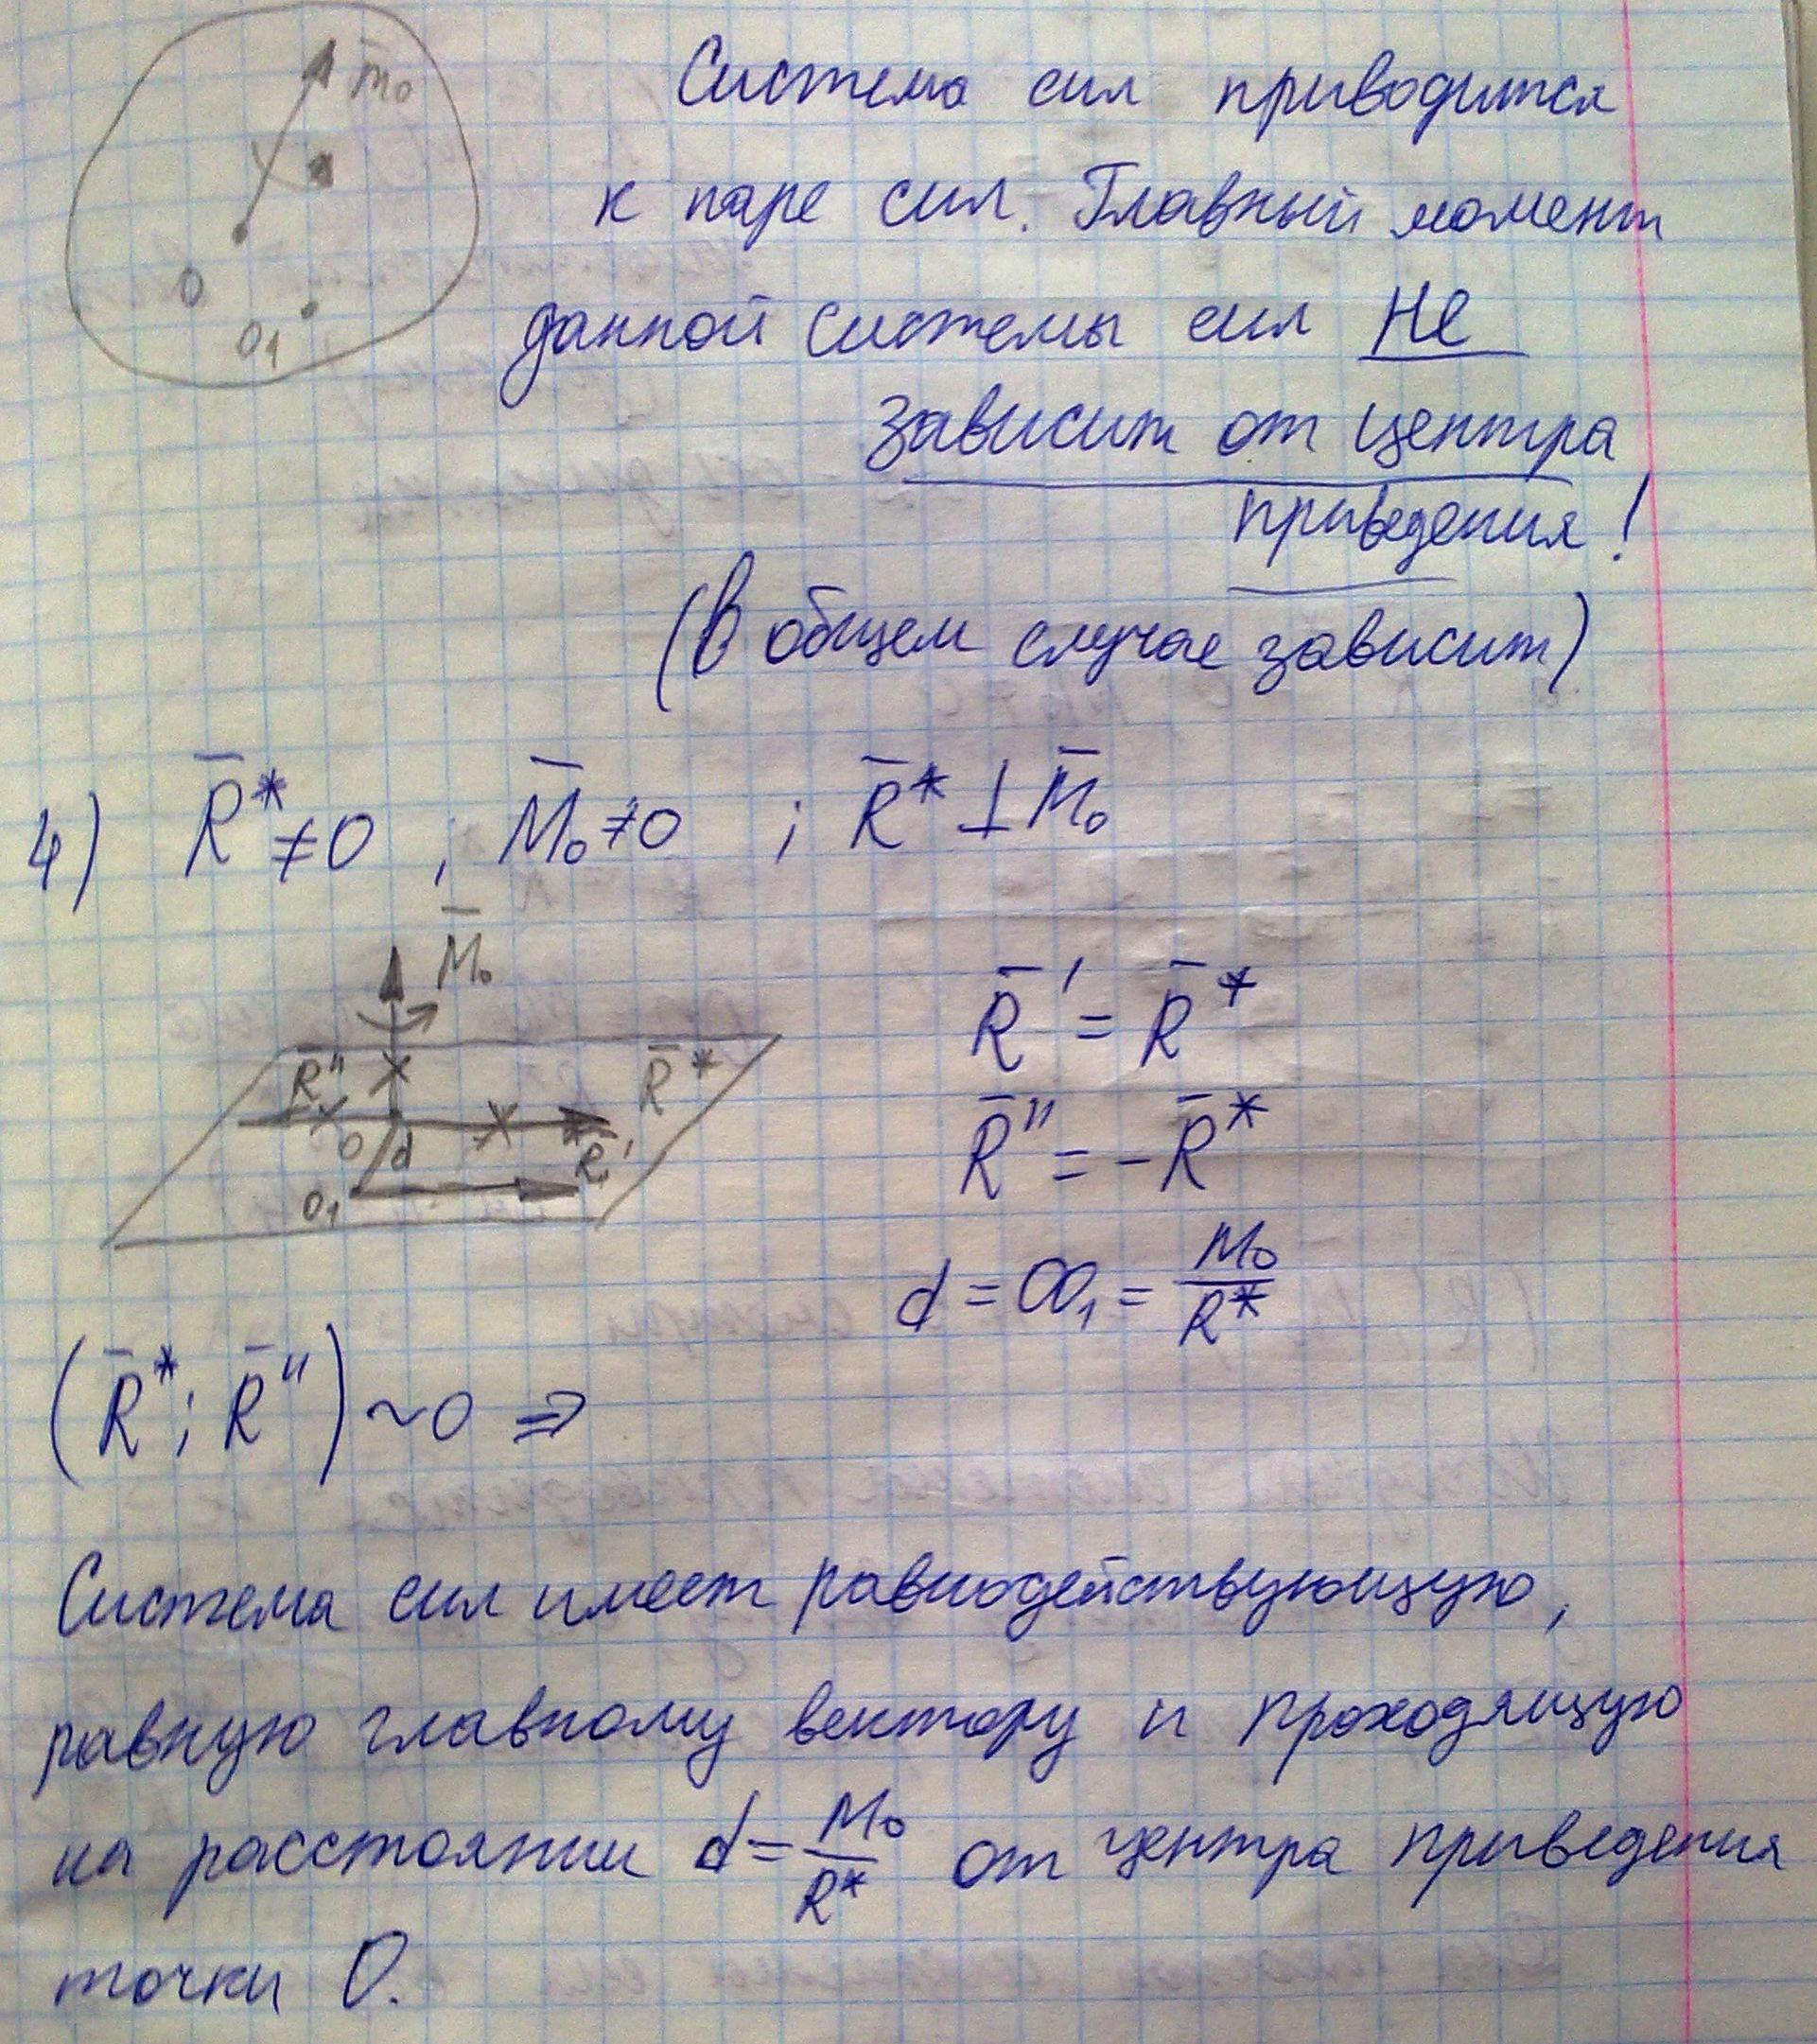 m̄₀
O
O₁
Система сил приводится
к паре сил. Главный момент
данной системы сил не
зависит от центра
приведения!
(В общем случае зависит)
4) R̄* ≠ 0 ; M̄₀ ≠ 0 ; R̄* ⊥ M̄₀
M̄₀
R̄" R̄*
O d R̄'
O₁
R̄' = R̄*
R̄" = -R̄*
d = OO₁ = M₀/R*
(R̄*; R̄") ~ 0 ⇒
Система сил имеет равнодействующую,
равную главному вектору и проходящую
на расстоянии d = M₀/R* от центра приведения
точки O.